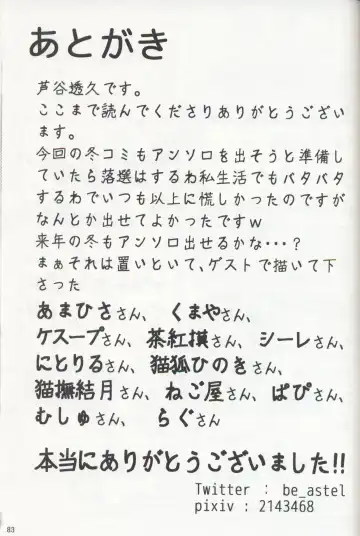 あとがき
芦谷透久です。
ここまで読んでくださりありがとうござい
ます。
今回の冬コミもアンソロを出そうと準備し
ていたら落選はするわ私生活でもバタバタ
するわでいつも以上に慌しかったのですが
なんとか出せてよかったですｗ
来年の冬もアンソロ出せるかな・・・？
まぁそれは置いといて、ゲストで描いて下
さった
あまひささん、 くまやさん、
ケスープさん、茶紅摸さん、シーレさん、
にとりるさん、猫狐ひのきさん、
猫撫結月さん、ねご屋さん、ぱぴさん、
むしゅさん、 らぐさん
本当にありがとうございました!!
Twitter : be_astel
pixiv : 2143468
83